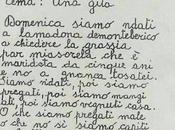 tema: una gita
Domenica siamo ndati
a lamadona demonteberico
a chiedere la grassia
par miasorela che è
maridata da cinque ani
e no a gnanca tosatei.
Siamo ndati, poi siamo
pregati poi siamo mangi
ati, poi siamo vegnuti casa.
O che siamo pregati male
o che no si siamo capiti